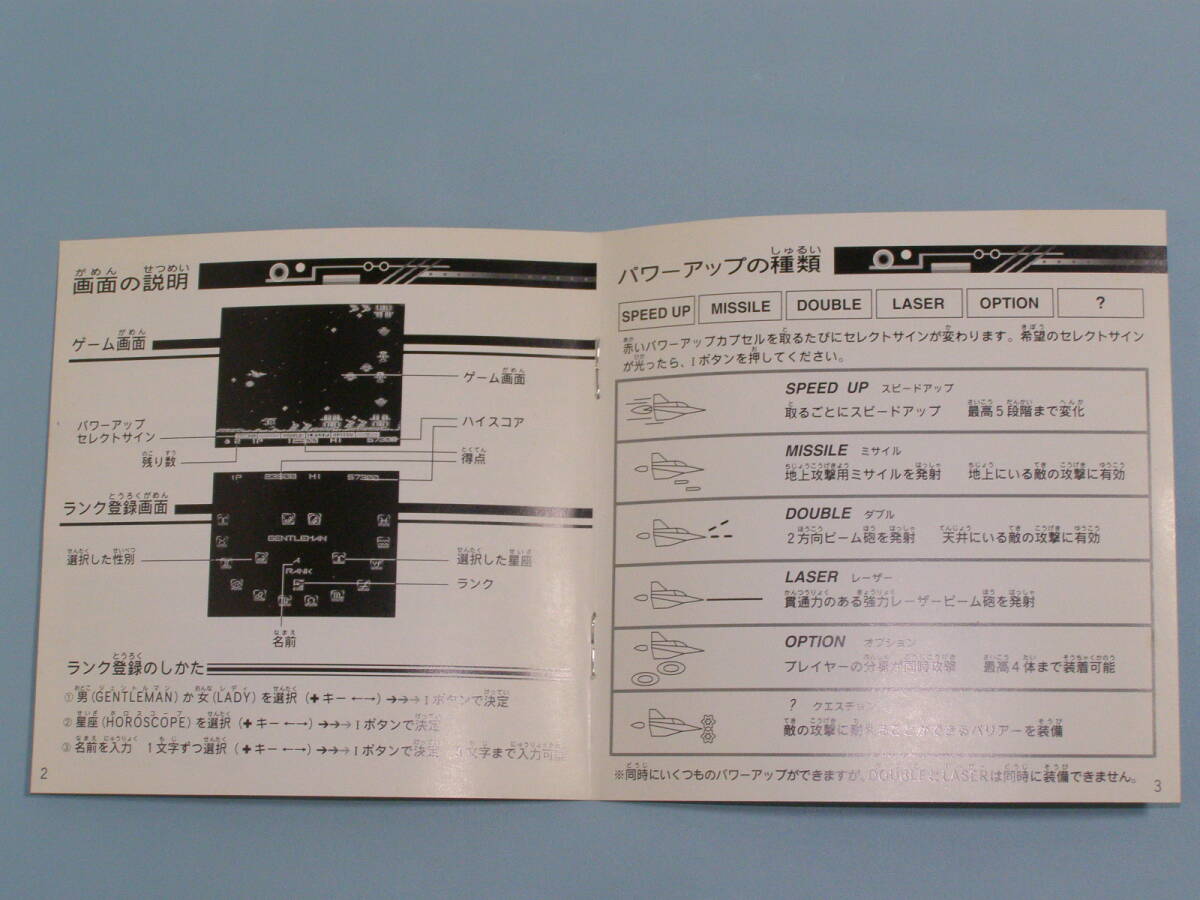 画面の説明
ゲーム画面
ゲーム画面
パワーアップ
セレクトサイン
ハイスコア
残り数
得点
1P 12500 HI 57300
1P 23500 HI 57300
ランク登録画面
GENTLEMAN
A
RANK
選択した性別
選択した星座
ランク
名前
ランク登録のしかた
①男(GENTLEMAN)か女(LADY)を選択 (✚キー ←→) →→→Iボタンで決定
②星座(HOROSCOPE)を選択 (✚キー ←→) →→→Iボタンで決定
③名前を入力 1文字ずつ選択 (✚キー ←→) →→→Iボタンで決定 文字まで入力可能
2
パワーアップの種類
SPEED UP MISSILE DOUBLE LASER OPTION ?
赤いパワーアップカプセルを取るたびにセレクトサインが変わります。希望のセレクトサイン
が光ったら、Iボタンを押してください。
SPEED UP スピードアップ
取るごとにスピードアップ 最高5段階まで変化
MISSILE ミサイル
地上攻撃用ミサイルを発射 地上にいる敵の攻撃に有効
DOUBLE ダブル
2方向ビーム砲を発射 天井にいる敵の攻撃に有効
LASER レーザー
貫通力のある強力レーザービーム砲を発射
OPTION オプション
プレイヤーの分身が同時攻撃 最高4体まで装着可能
? クエスチョン
敵の攻撃に耐えることができるバリアーを装備
※同時にいくつものパワーアップができますが、DOUBLEとLASERは同時に装備できません。
3